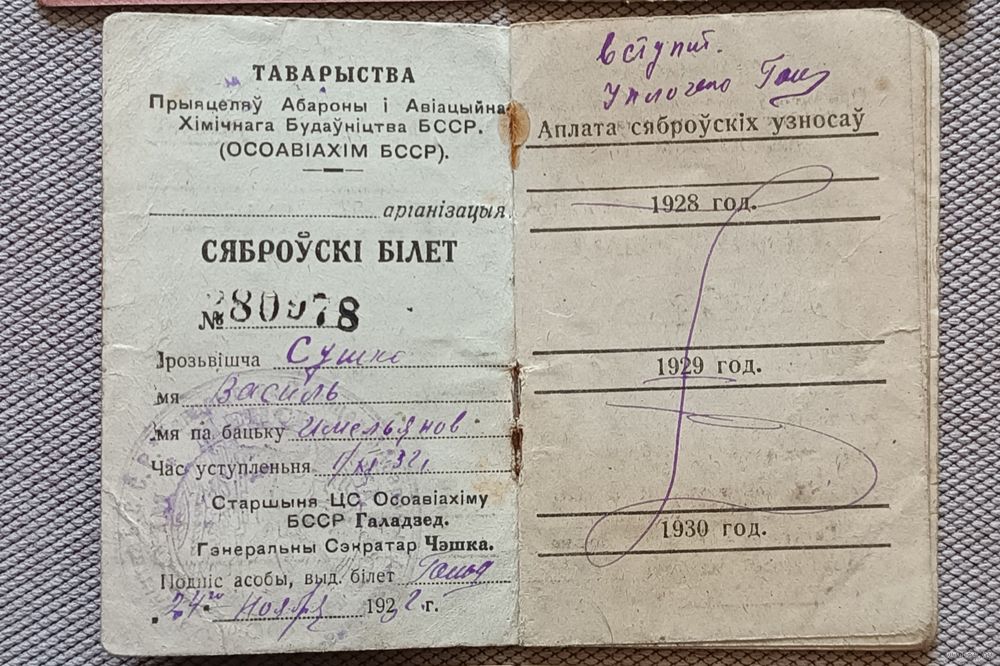 ТАВАРЫСТВА
Прыяцеляў Абароны і Авіацыйна
Хімічнага Будаўніцтва БССР.
(ОСОАВІАХІМ БССР).
арганізацыя
СЯБРОЎСКІ БІЛЕТ
№ 280978
Прозьвішча Сушко
мя Василь
мя па бацьку Имельянов
Час уступленьня 1/XI-32г.
Старшыня ЦС Осоавіахіму
БССР Галадзед.
Гэнеральны Сэкратар Чэшка.
Подпіс асобы, выд. білет
24го Ноября 1932 г.
Вступит.
Уплочено
Аплата сяброўскіх узносаў
1928 год.
1929 год.
1930 год.